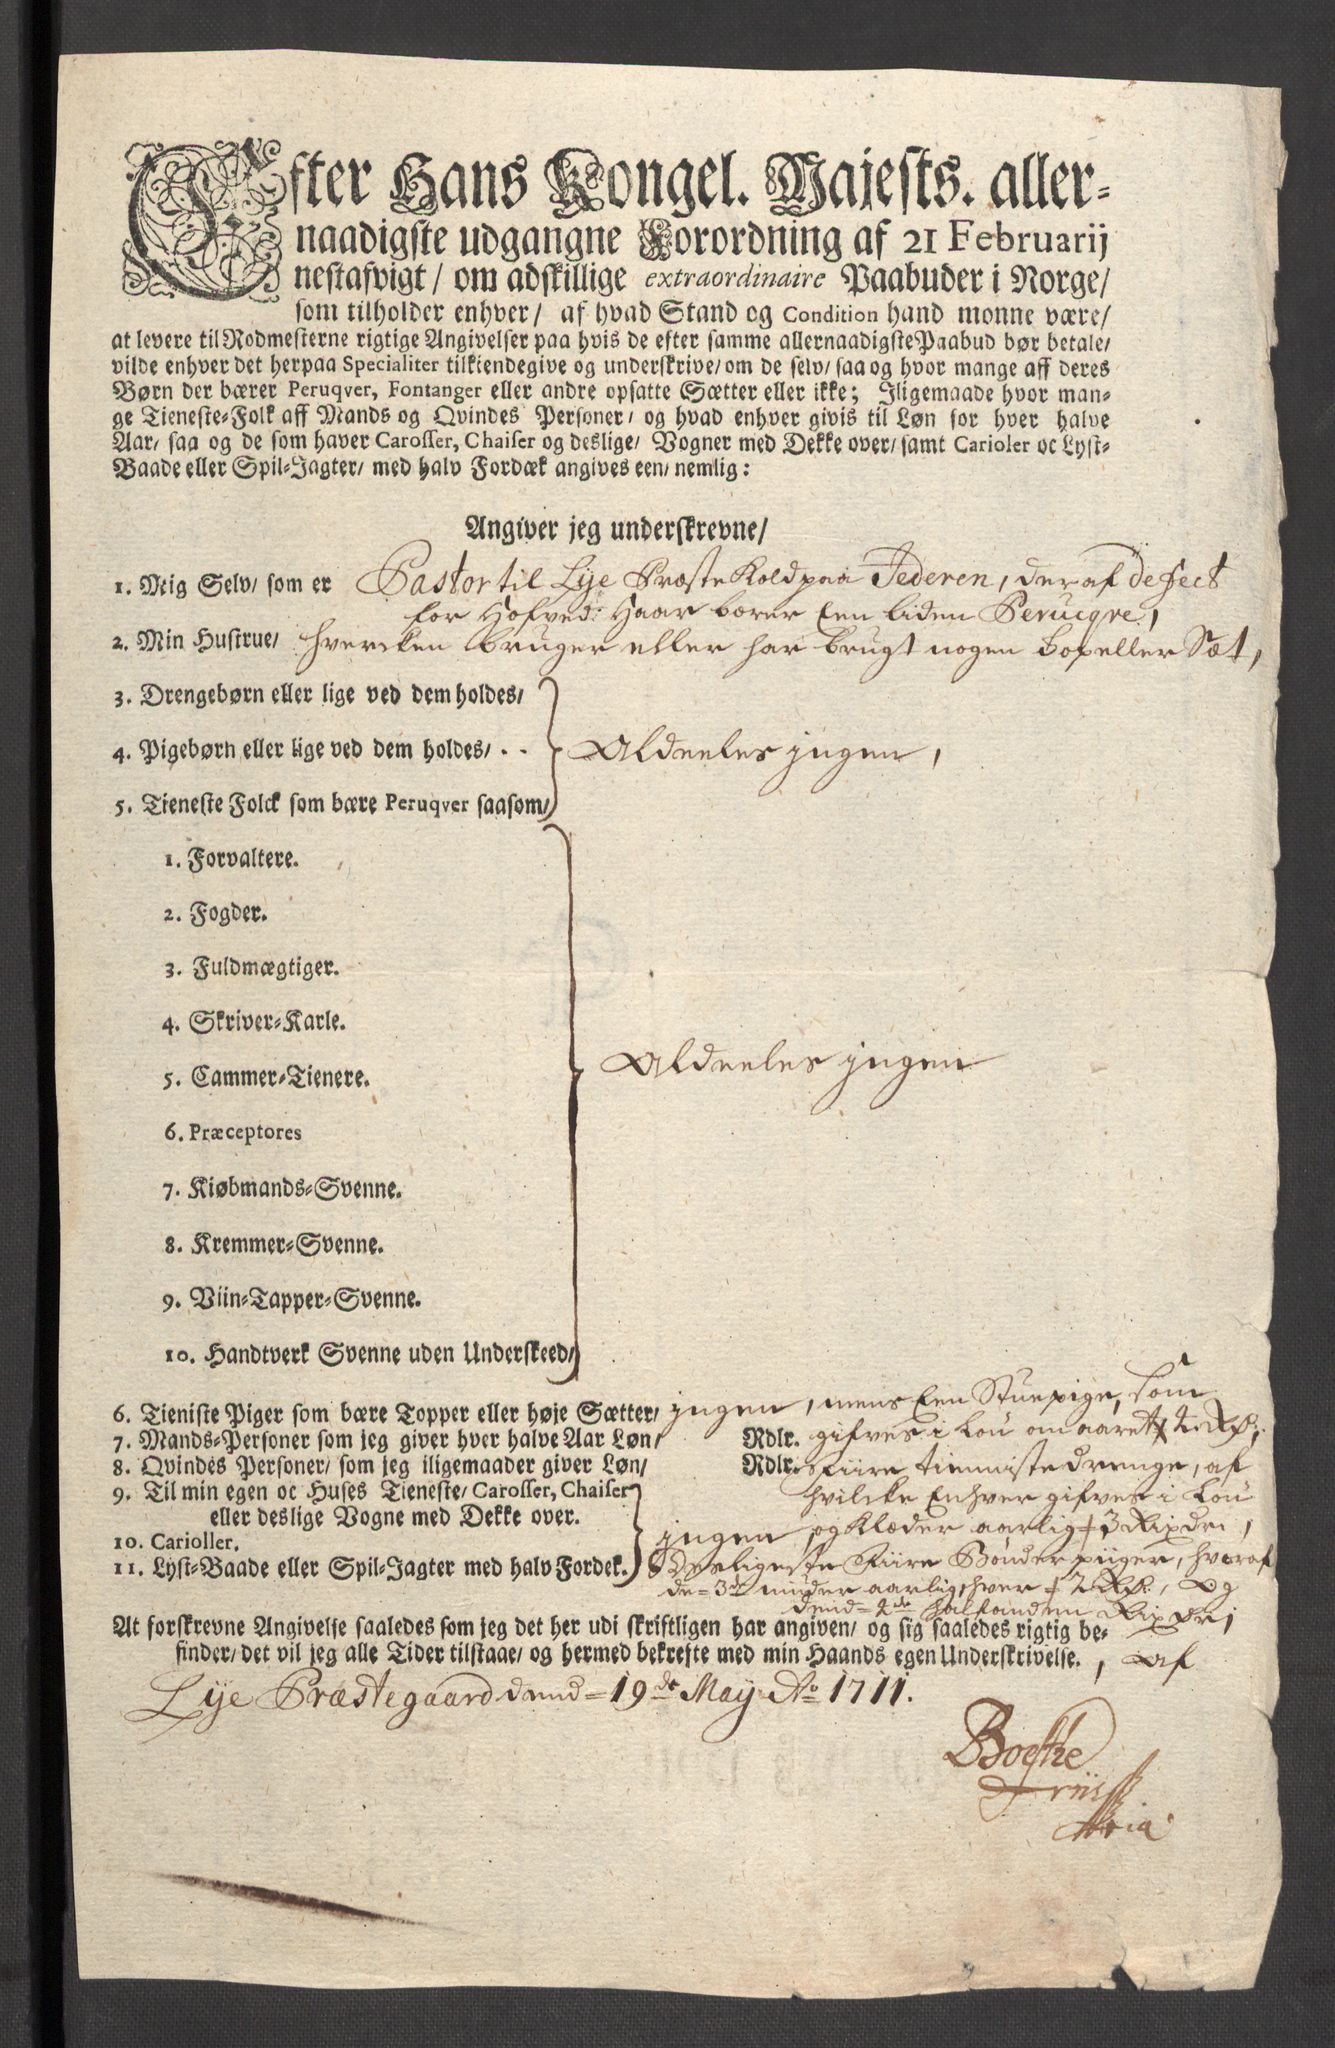 Efter Hans Kongel. Majests. aller-
naadigste udgangne Forordning af 21 Februarij
nestafvigt/ om adskillige extraordinaire Paabuder i Norge/
som tilholder enhver/ af hvad Stand og Condition hand monne være/
at levere til Rodmesterne rigtige Angivelser paa hvis de efter samme allernaadigste Paabud bør betale/
vilde enhver det herpaa Specialiter tilkiendegive og underskrive/ om de selv/ saa og hvor mange aff deres
Børn der bærer Peruqver, Fontanger eller andre opsatte Sætter eller ikke; Iligemaade hvor man-
ge Tieneste-Folk aff Mands og Qvindes Personer/ og hvad enhver givis til Løn for hver halve
Aar/ saa og de som haver Carosser, Chaiser og deslige/ Vogner med Dekke over/ samt Carioler oc Lyst-
Baade eller Spil-Jagter/ med halv Fordæk angives een/ nemlig:
Angiver jeg underskrevne/
1. Mig Selv/ som er Pastor til Lye Præste Kold paa Jederen, der af defect
for Hofved: Haar bærer Een liden Perucqve,
2. Min Hustrue/ hvercken bruger eller har brugt nogen Top eller Sæt,
3. Drengebørn eller lige ved dem holdes/
4. Pigebørn eller lige ved dem holdes/ . . Aldeeles jngen,
5. Tieneste Folck som bære Peruqver saasom/
1. Forvaltere.
2. Fogder.
3. Fuldmægtiger.
4. Skriver-Karle.
5. Cammer-Tienere. Aldeeles jngen
6. Præceptores
7. Kiøbmands-Svenne.
8. Kremmer-Svenne.
9. Viin-Tapper-Svenne.
10. Handtverk Svenne uden Underskeed/
6. Tieniste Piger som bære Topper eller høje Sætter/ jngen, mens Een Stuepige, som
7. Mands-Personer som jeg giver hver halve Aar Løn/ Rdlr. gifves i Lou om aaret 4 Rdr.
8. Qvindes Personer/ som jeg iligemaader giver Løn/ Rdlr. Fiire tienniste drenge, af
9. Til min egen oc Huses Tieneste/ Carosser, Chaiser hvilcke Enhver gifves i Lou
eller deslige Vogne med Dekke over.
10. Carioller. jngen og Klæder aarlig 3 Rixdr,
11. Lyst-Baade eller Spil-Jagter med halv Fordek. Desligeste Fiire Bønder piiger, hvoraf
de 3de nyder aarlig hver 2 Rdr., Og
dend 4de halfanden Rixdr;
At forskrevne Angivelse saaledes som jeg det her udi skriftligen har angiven/ og sig saaledes rigtig be-
finder/ det vil jeg alle Tider tilstaae/ og hermed bekrefte med min Haands egen Underskrivelse. , Af
Lye Præstegaard dend 19de May Ao 1711.
Boethe